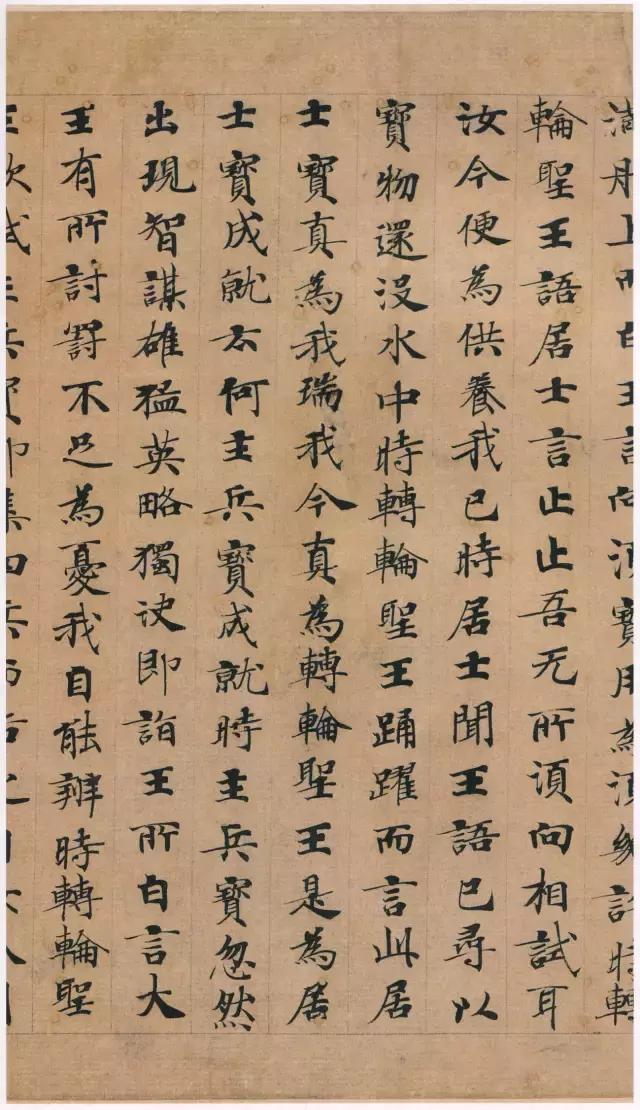 滿船上而白王言向須寶用為須幾許時轉
輪聖王語居士言止止吾无所須向相試耳
汝今便為供養我已時居士聞王語已尋以
寶物還没水中時轉輪聖王踊躍而言此居
士寶真為我瑞我今真為轉輪聖王是為居
士寶成就云何主兵寶成就時主兵寶忽然
出現智謀雄猛英略獨决即詣王所白言大
王有所討罰不足為憂我自能辨時轉輪聖
王欲試主兵寶即集四兵而告之曰汝今用